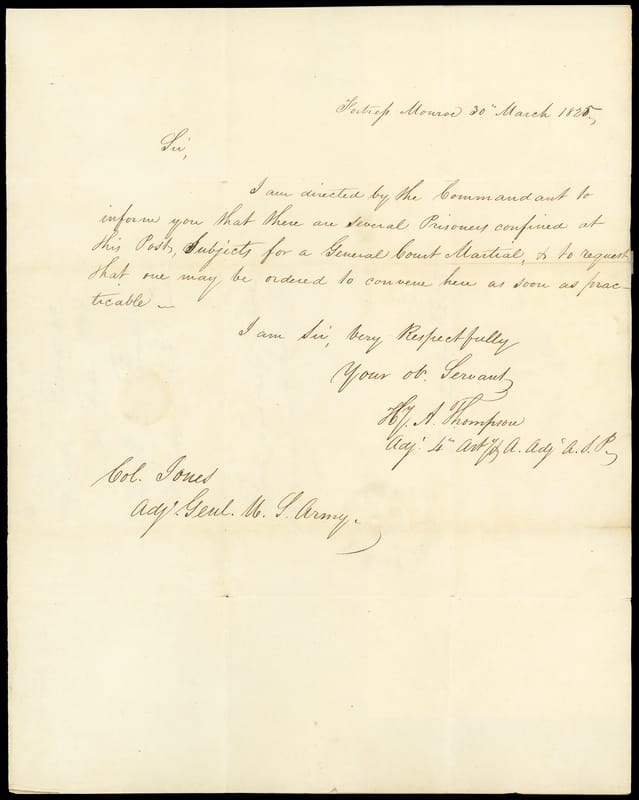 Fortress Monroe 30" March 1825,
Sir,
I am directed by the Commandant to
inform you that there are several Prisoners confined at
this Post, Subjects for a General Court Martial, & to request
that one may be ordered to convene here as soon as prac-
ticable —
I am Sir, Very Respectfully
Your ob. Servant
Hy. A. Thompson
Adj. 4" Arty & A. Adj A. S. P.
Col. Jones
Adj. Genl. U. S. Army.